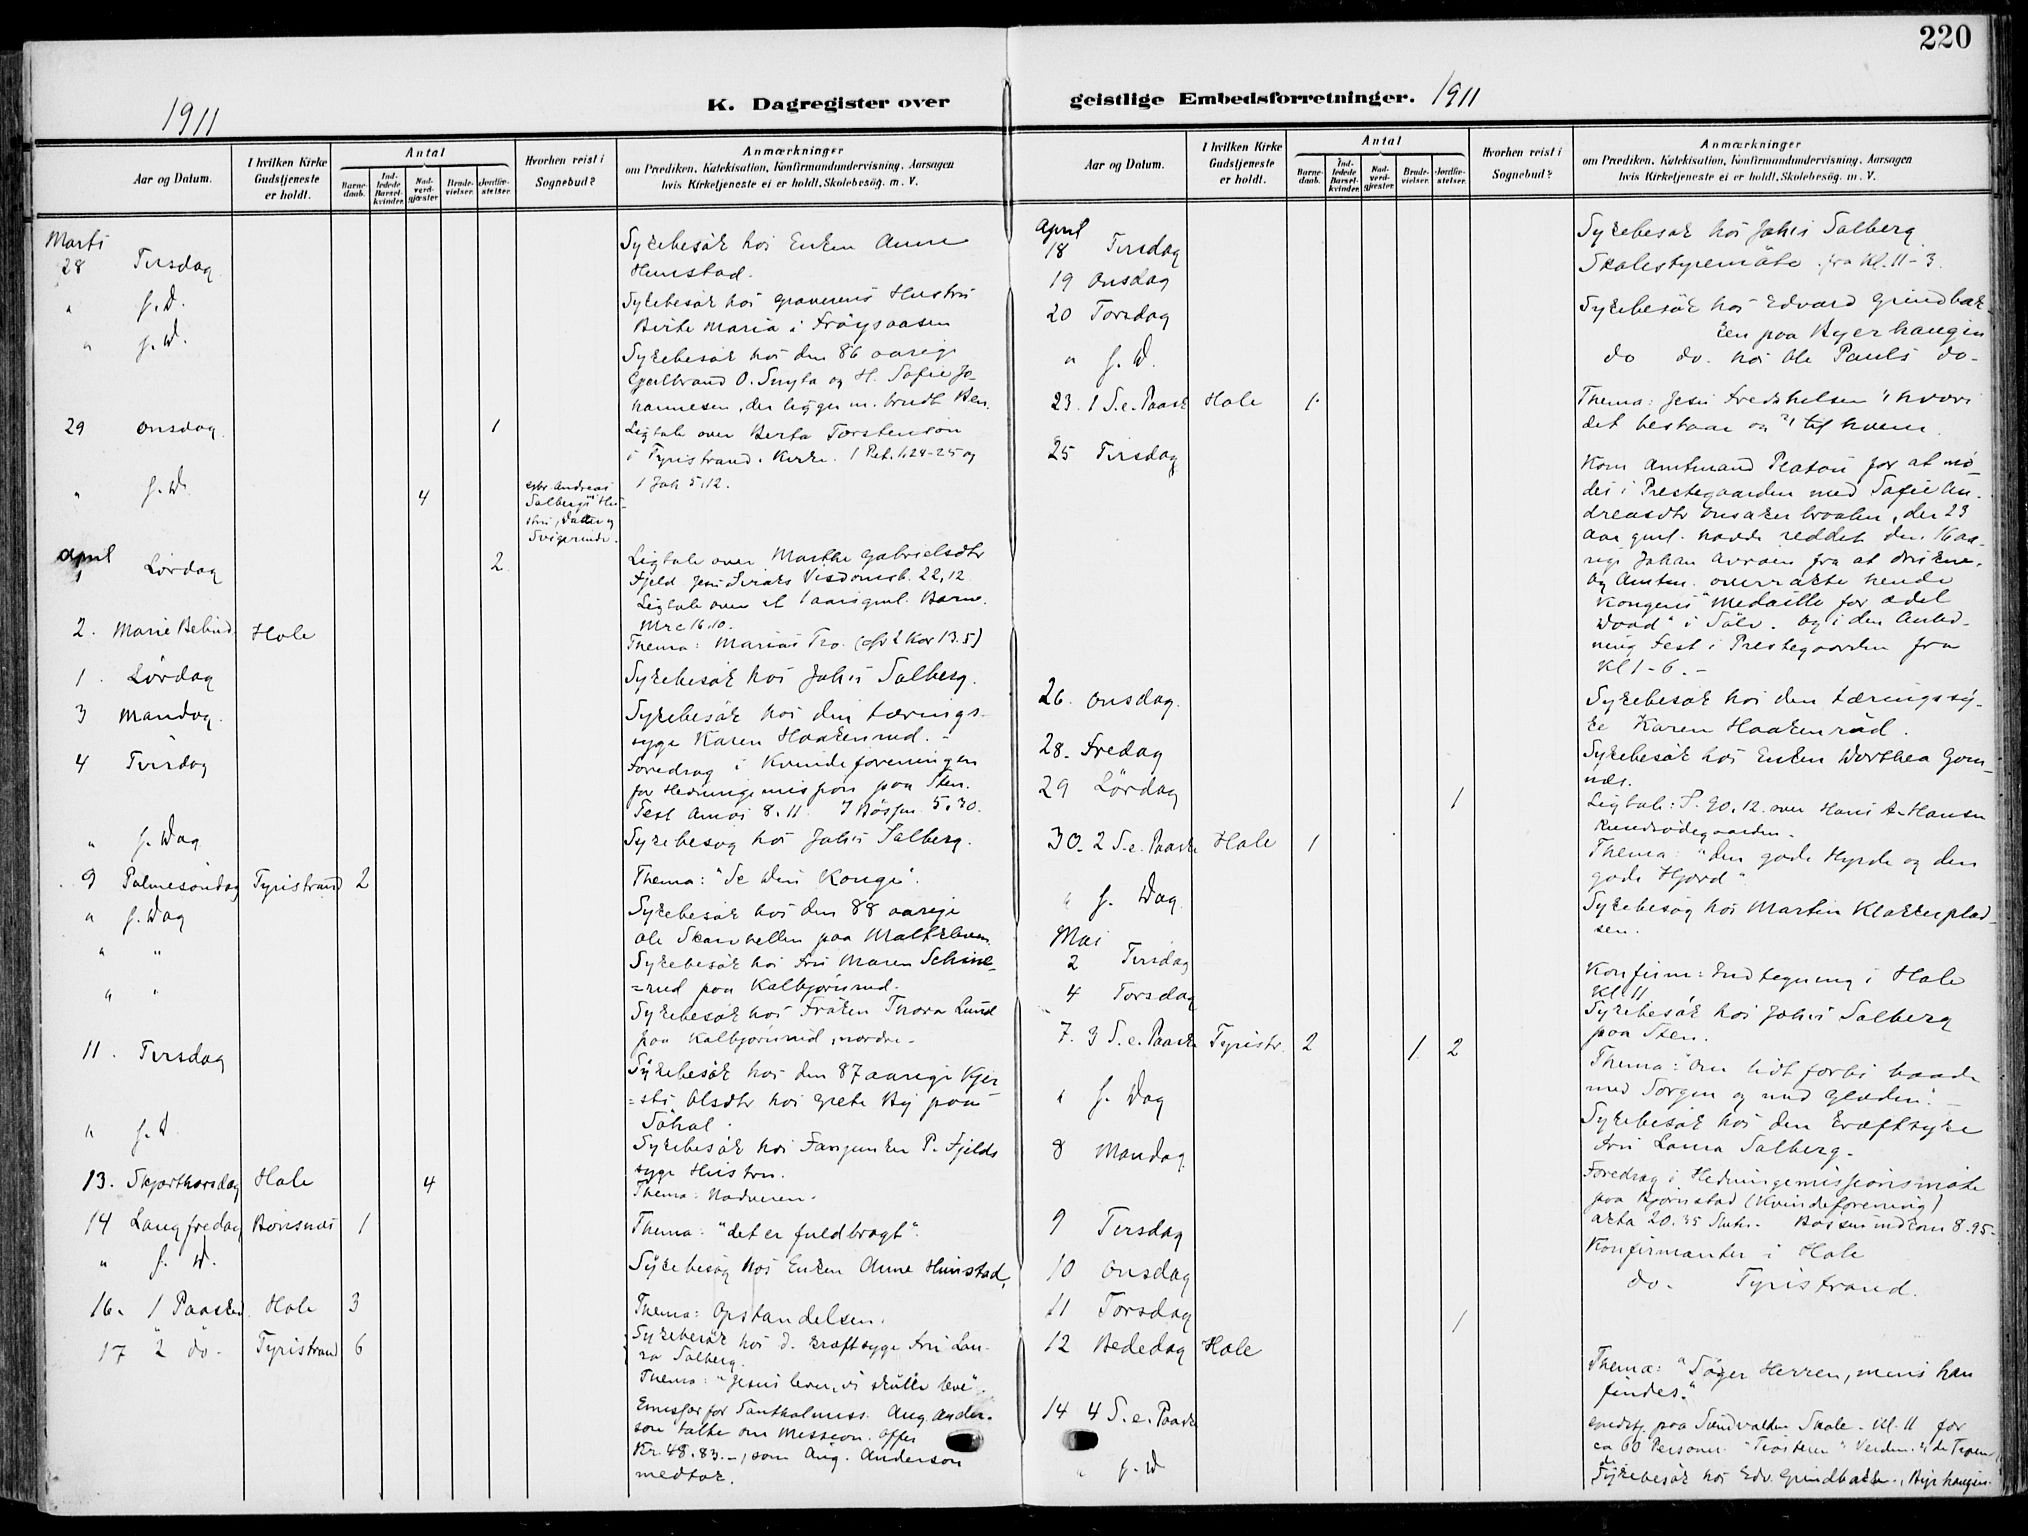 220
1911
K. Dagregister over
geistlige Embedsforretninger. 1911
Aar og Datum.
I hvilken Kirke Gudstjeneste er holdt.
Antal
Barnedaab.
Indledede Barselkvinder.
Nadverdgjæster
Brudevielser.
Jordfæstelser.
Hvorhen reist i Sognebud?
Anmærkninger
om Prædiken, Katekisation, Konfirmandundervisning, Aarsagen
hvis Kirketjeneste ei er holdt, Skolebesøg. m. V.
Marts
28 Tirsdag
Sykebesök hos Enken Anne
Hunstad.
" s. D.
Sykebesök hos graverens Hustru
Birte Maria i Fröysaasen
" s. D.
Sykebesök hos den 86 aarige
Gulbrand O. Smyta og H. Sofie Jo-
hannesen, der ligger m. brudt Ben.
29 Onsdag 1
Ligtale over Berta Torstenson
i Tyristrand. Kirke. 1 Pet. 1.24-25 og
1 Joh 5,12.
" s. D. 4
Andreas
Salbergs Hu-
stru, Datter og
Svigerinde.
April
1 Lördag 2
Ligtale over Marthe Gabrielsdtr
Fjeld Jesu Siraks Visdomsb. 22,12
Ligtale over et 1 aars gml. Barn.
Mrc 16.10.
2. Marie Bebud. Hole
Thema: Marias Tro. (cfr 2 Kor 13.5)
1. Lördag
Sykebesök hos Johs Salberg.
3 Mandag.
Sykebesök hos den tærings-
syge Karen Haakenrud. -
4 Tirsdag
Foredrag i Kvindeforeningen
for Hedningemissjon paa Sten.
Text Amos 8.11 I Bössen 5.30.
" s. Dag
Sykebesøg hos Johs Salberg.
9 Palmesöndag Tyristrand 2
Thema: "Se Din Konge".
" s. Dag
Sykebesök hos den 88 aarige
Ole Skarvellen paa
" "
Sykebesök hos Fru Maren Schine-
=rud paa Kolbjörnrud.
" "
Sykebesök hos Fröken Thora Lund
paa Kolbjörnrud, nordre-
11. Tirsdag
Sykebesök hos den 87 aarige Kjer
=sti Olsdtr hos Grete By paa
Söhol.
" s. D.
Sykebesök hos P. Fjelds
syge Hustru.
13. Skjærthorsdag Hole 4
Thema: Nadveren.
14 Langfredag Bönsnæs 1
Thema: "det er fuldbragt".
" s. D.
Sykebesøg hos Enken Anne Hunstad,
16. 1 Paasked. Hole 3
Thema: Opstandelsen.
Sykebesök hos d. kræftsyge Fru Lau-
ra Salberg.
17 2 do. Tyristrand 6
Thema: "Jesus lever, vi skulle leve".
Emissær for Santhalmiss. Aug. Ander-
son talte om Mission. Offer
Kr. 48.83.-, som Aug. Anderson
medtok.
April
18 Tirsdag
Sykebesøk hos Johs Salberg
19 Onsdag
Skolestyremöte fra Kl. 11-3.
20 Torsdag
Sykebesök hos Edvard Grindbak-
ken paa Byerhaugen
" s. D.
do do. hos Ole Pauls do-
23. 1 S.e. Paask Hole 1.
Thema: Jesu Fredshilsen 1 hvori
det bestaar og 2 til hvem.
25 Tirsdag
Kom Amtmand Platou for at mö-
des i Prestegaarden med Sofie An-
dreasdtr Onsakerbraaten, der 23
aar gml. havde reddet den 16 aa-
rige Johan fra at drukne,
og Amtm. overrakte hende
Kongens "Medaille for ædel
Daad" i Sölv. Og i den Anled-
ning Fest i Prestegaarden fra
Kl 1-6. -
26. Onsdag.
Sykebesök hos den tæringssy-
ke Karen Haakenrud.
28. Fredag
Sykebesök hos Enken Dorthea Gom-
næs.
29 Lördag 1
Ligtale: S. 90, 12 over Hans A. Hansen
Rundsödegaarden.
30. 2 S.e. Paaske Hole 1
Thema: "Den gode Hyrde og den
gode Hjord".
" s. Dag.
Sykebesøg hos Martin Klokkerplad-
sen.
Mai
2 Tirsdag
Konfirm: Indtegning i Hole
Kl. 11
4 Torsdag
Sykebesök hos Johs Salberg
paa Sten.
7. 3 S.e. Paaske Tyristr. 2 1. 2
Thema: "Om lidt forbi baade
med Sorgen og med Glæden". -
" s. Dag
Sykebesök hos den Kræftsyke
Fru Laura Salberg.
8 Mandag
Foredrag i Hedningemissionsmöte
paa Bjørnstad (Kvindeforening)
20.35 Bössen indkom 8.95.
9 Tirsdag
Konfirmanter i Hole
10 Onsdag
do. Tyristrand.
11 Torsdag 1
12 Bededag Hole
Thema: "Söger Herren, mens han
findes."
14 4 S.e. Paaske
paa Sundvolden Skole. Kl. 11 for
ca 60 Personer. "Trösteren" Verden.
" s. D
Sykebesök hos Edv. Grindbakken, Byrhaugen.